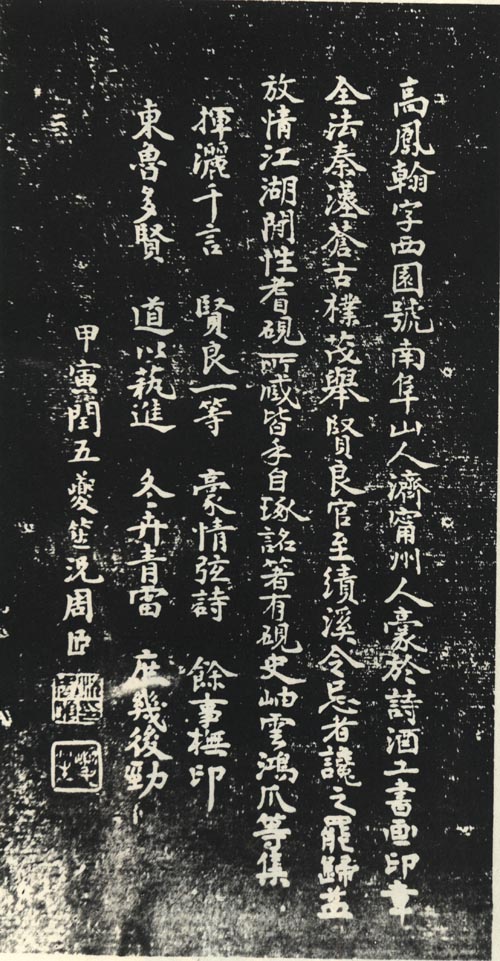 高鳳翰字西園號南阜山人濟甯州人豪於詩酒工書画印章
全法秦漢蒼古樸茂舉賢良官至績溪令忌者讒之罷歸益
放情江湖閒性耆硯所臧皆手自琢銘著有硯史岫雲鴻爪等集
揮灑千言 賢良一等 豪情弦詩 餘事橅印
東魯多賢 道以埶進 冬卉青雷 庶幾後勁
甲寅閏五夔笙況周𦣞